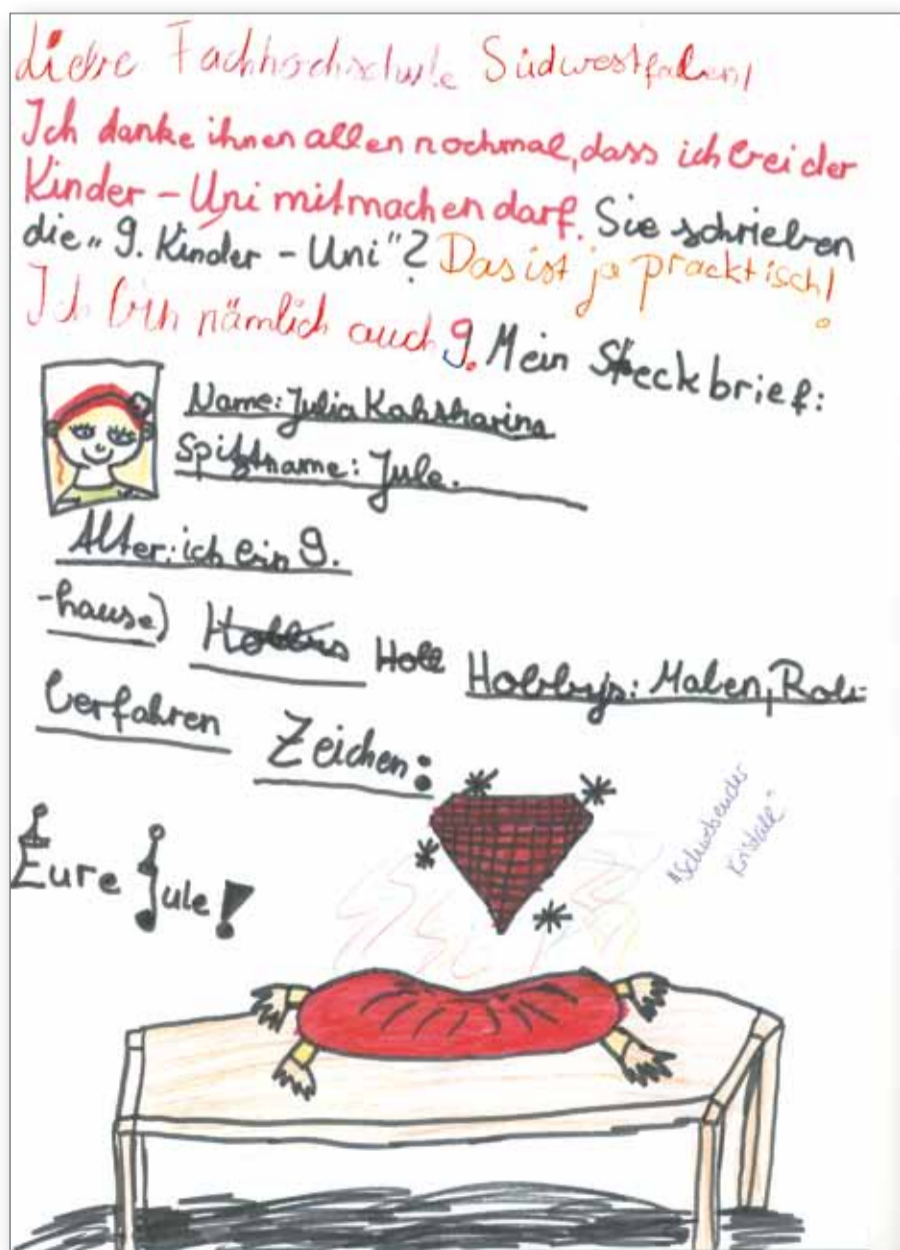 Liebe Fachhochschule Südwestfalen!
Ich danke ihnen allen nochmal, dass ich bei der
Kinder - Uni mitmachen darf. Sie schrieben
die „9. Kinder - Uni"? Das ist ja pracktisch!
Ich bin nämlich auch 9. Mein Steckbrief:
Name: Julia Kahtharina
Spitzname: Jule.
Alter: ich bin 9.
-hause) Hobb Hobbys: Malen, Rol-
lerfahren Zeichen:
"Schwebender
Kristall"
Eure Jule!